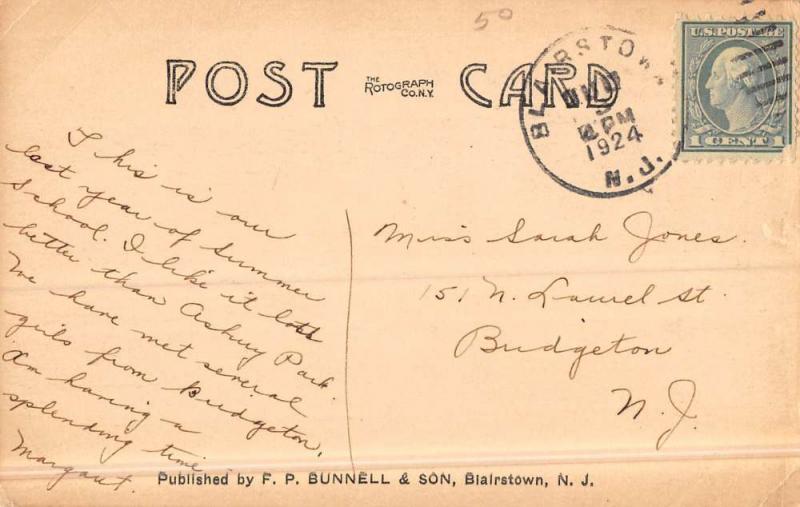 50
POST CARD
THE
ROTOGRAPH
CO. N.Y.
BLAIRSTOWN
PM
1924
N.J.
U.S. POSTAGE
1 CENT 1
This is our
last year of Summer
School. I like it lots
better than Asbury Park.
We have met several
girls from Bridgeton.
Am having a
splending time
Margaret.
Miss Sarah Jones.
151 N. Laurel St.
Bridgeton
N. J.
Published by F. P. BUNNELL & SON, Blairstown, N. J.